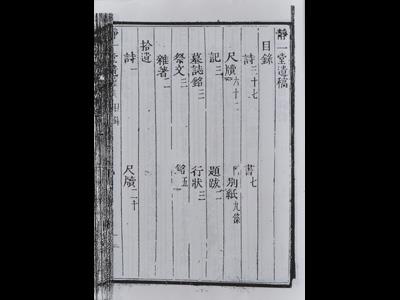 靜一堂遺稿
目錄
詩二十七
書七
尺牘六十二
別紙九條
記三
題跋二
墓誌銘三
行狀三
祭文三
銘五
雜著二
拾遺
詩一
尺牘二十